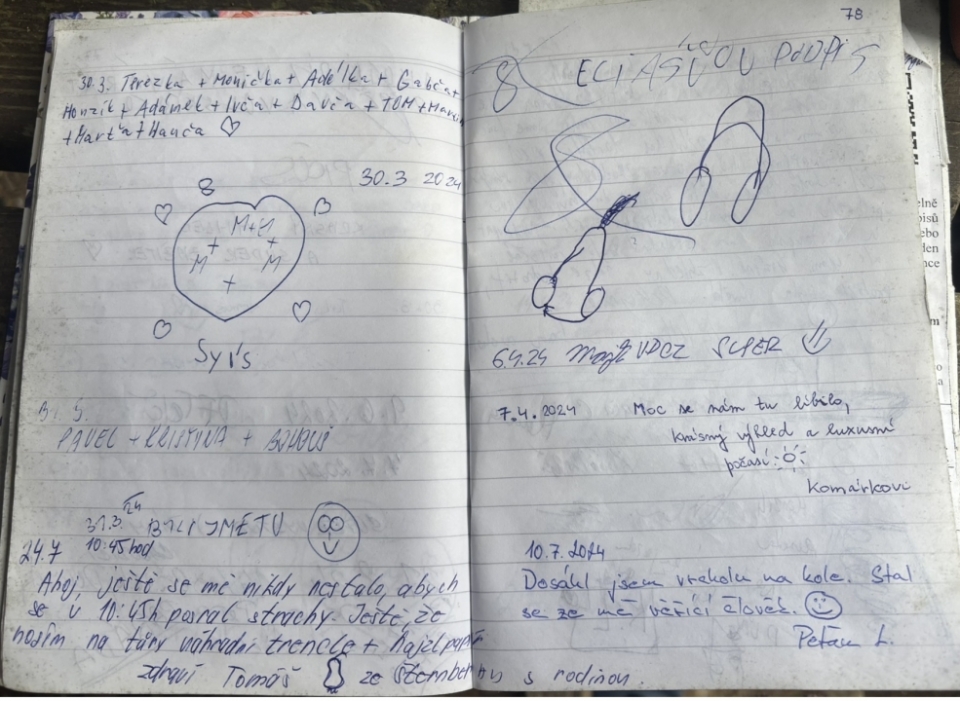 30.3. Terezka + Monička + Adélka + Gabča +
Honzík + Adámek + Ivča + Davča + TOM + Martin
+ Marťa + Hanča
30.3 2024
8
M+M
+ +
M M
+
Syis
PAVEL + KRISTINA +
31.3. 24 BYLI JSME TU
10:45 hod
24.7
Ahoj, ještě se mě nikdy nestalo, abych
se v 10:45h posral strachy. Ještě, že
nosím na túry náhradní trencle + hajzlpapír
zdraví Tomáš ze Šternberku s rodinou.
78
8 PODPIS
8
6.4.24 VDCZ SUPER
7.4.2024 Moc se nám tu líbilo,
krásný výhled a luxusní
počasí
Komárkovi
10.7.2024
Dosáhl jsem vrcholu na kole. Stal
se ze mě věřící člověk.
L.
elně
pisů
ebo
den
nce
m